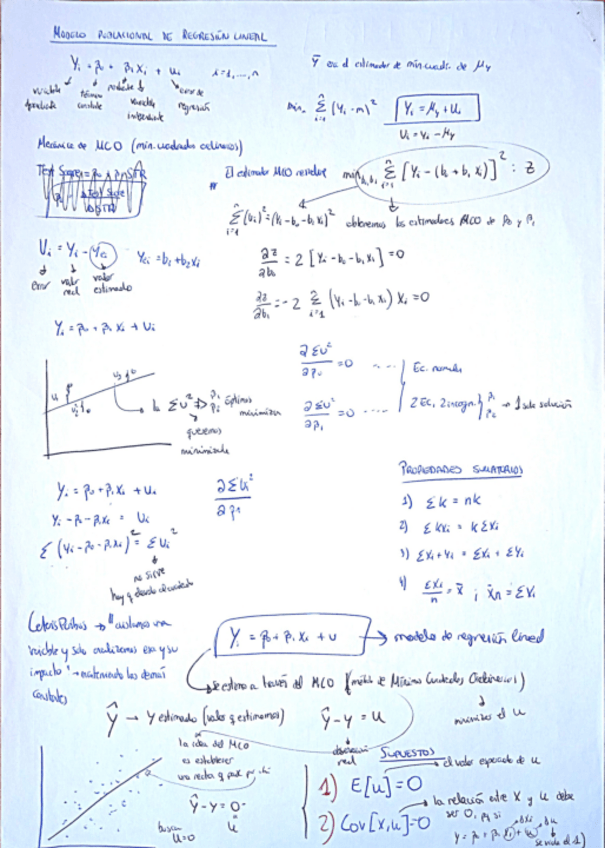 MODELO POBLACIONAL DE REGRESIÓN LINEAL
Yi = β0 + β1 Xi + ui    i = 1,..., n
variable
término constante
variable
error de regresión
Ȳ es el estimador de min cuadr. de μy
min. Σ (Yi - m)²    Yi = μy + ui
ui = Yi - μy
Mecánica de MCO (min. cuadrados ordinarios)
El estimador MCO resuelve min b0, b1 Σ [Yi - (b0 + b1 Xi)]² : Z
Σ (ui)² = (Yi - b0 - b1 Xi)²    obtenemos los estimadores MCO de β0 y β1
Ui = Yi - Yei    Yei = b1 + b2 Xi
error    valor real    valor estimado
∂z/∂b0 = 2 [Yi - b0 - b1 Xi] = 0
∂z/∂b1 = -2 Σ (Yi - b0 - b1 Xi) Xi = 0
Yi = β0 + β1 Xi + Ui
∂ΣU²/∂β0 = 0 ---- Ec. normales
∂ΣU²/∂β1 = 0 ---- 2 Ec, 2 incogn. β1 β2 → 1 sola solución
ΣU² ⇒ β1 β2 óptimos minimizan
queremos minimizarla
Yi = β0 + β1 Xi + Ui    ∂ΣU²/∂β1
Yi - β0 - β1 Xi = Ui
Σ (Yi - β0 - β1 Xi)² = ΣUi²
no sirve
hay q
PROPIEDADES SUMATORIOS
1) Σk = nk
2) ΣkXi = kΣXi
3) ΣXi + Yi = ΣXi + ΣYi
4) ΣXi/n = x̄ ; x̄n = ΣXi
Ceteris Paribus → "aislamos una
variable y solo analizamos esa y su
impacto" → manteniendo las demás
constantes
Yi = β0 + β1 Xi + u → modelo de regresión lineal
se estima a través del MCO (método de Mínimos Cuadrados Ordinarios)
minimizar el u
Ŷ → Y estimado (valor q estimamos)    Ŷ - Y = u
real
la idea del MCO
es establecer
una recta q pase por ahí
Ŷ - Y = 0
u
buscan
u = 0
SUPUESTOS
1) E[u] = 0    el valor esperado de u
2) Cov[x, u] = 0    la relación entre X y u debe
ser 0, pq si
Y = β0 + β1 Xi + u
se viola el 1)